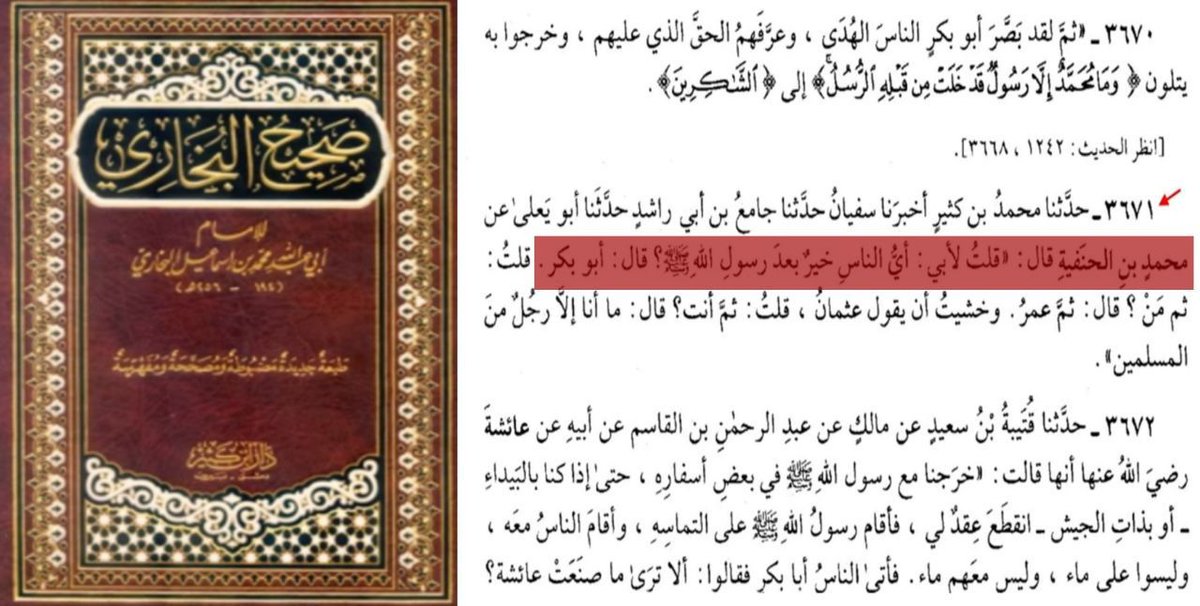 صَحِيحُ البُخَارِي
للإمام
أبي عبد الله محمد بن إسماعيل البخاري
(١٩٤ - ٢٥٦هـ)
طَبعَةٌ جَديدَةٌ مَضبُوطَةٌ وَمُصَحَّحَةٌ وَمُفَهرَسَةٌ
دار ابن كثير
٣٦٧٠ ـ «ثمَّ لقد بَصَّرَ أبو بكرٍ الناسَ الهُدَى ، وعرَّفَهمُ الحقَّ الذي عليهم ، وخرجوا به
يتلون ﴿ وَمَا مُحَمَّدٌ إِلَّا رَسُولٌ قَدْ خَلَتْ مِن قَبْلِهِ ٱلرُّسُلُ ﴾ إلى ﴿ ٱلشَّٰكِرِينَ ﴾ .
[انظر الحديث : ١٢٤٢ ، ٣٦٦٨].
٣٦٧١ ـ حدَّثنا محمدُ بن كثيرٍ أخبرَنا سفيانُ حدَّثنا جامعُ بن أبي راشدٍ حدَّثَنا أبو يَعلىٰ عن
محمدِ بنِ الحنَفيةِ قال : «قلتُ لأبي : أيُّ الناسِ خيرٌ بعدَ رسولِ اللهِ ﷺ؟ قال : أبو بكر . قلتُ :
ثم مَنْ ؟ قال : ثمَّ عمرُ . وخشيتُ أن يقول عثمانُ ، قلتُ : ثمَّ أنت؟ قال : ما أنا إلَّا رجُلٌ منَ
المسلمين» .
٣٦٧٢ ـ حدَّثنا قُتَيبةُ بْنُ سعيدٍ عن مالكٍ عن عبدِ الرحمٰنِ بن القاسم عن أبيهِ عن عائشةَ
رضيَ اللهُ عنها أنها قالت : «خرَجنا مع رسول اللهِ ﷺ في بعضِ أسفارِهِ ، حتىٰ إذا كنا بالبَيداءِ
ـ أو بذاتِ الجيش ـ انقطَعَ عِقدٌ لي ، فأقام رسولُ اللهِ ﷺ على التماسِهِ ، وأقامَ الناسُ معَه ،
وليسوا على ماء ، وليس معَهم ماء . فأتىٰ الناسُ أبا بكرٍ فقالوا : ألا ترَىٰ ما صنعَتْ عائشة؟